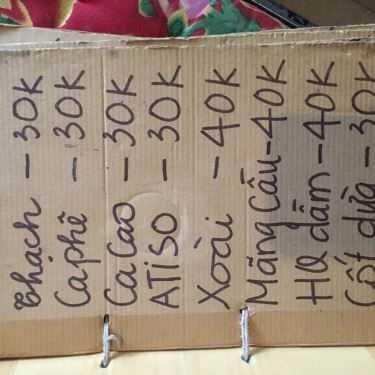 Thạch - 30K
Caphê - 30K
Ca Cao - 30K
ATISO - 30K
Xoài - 40K
Mãng Cầu - 40K
HQ dầm - 40K
Cốt dừa - 30K